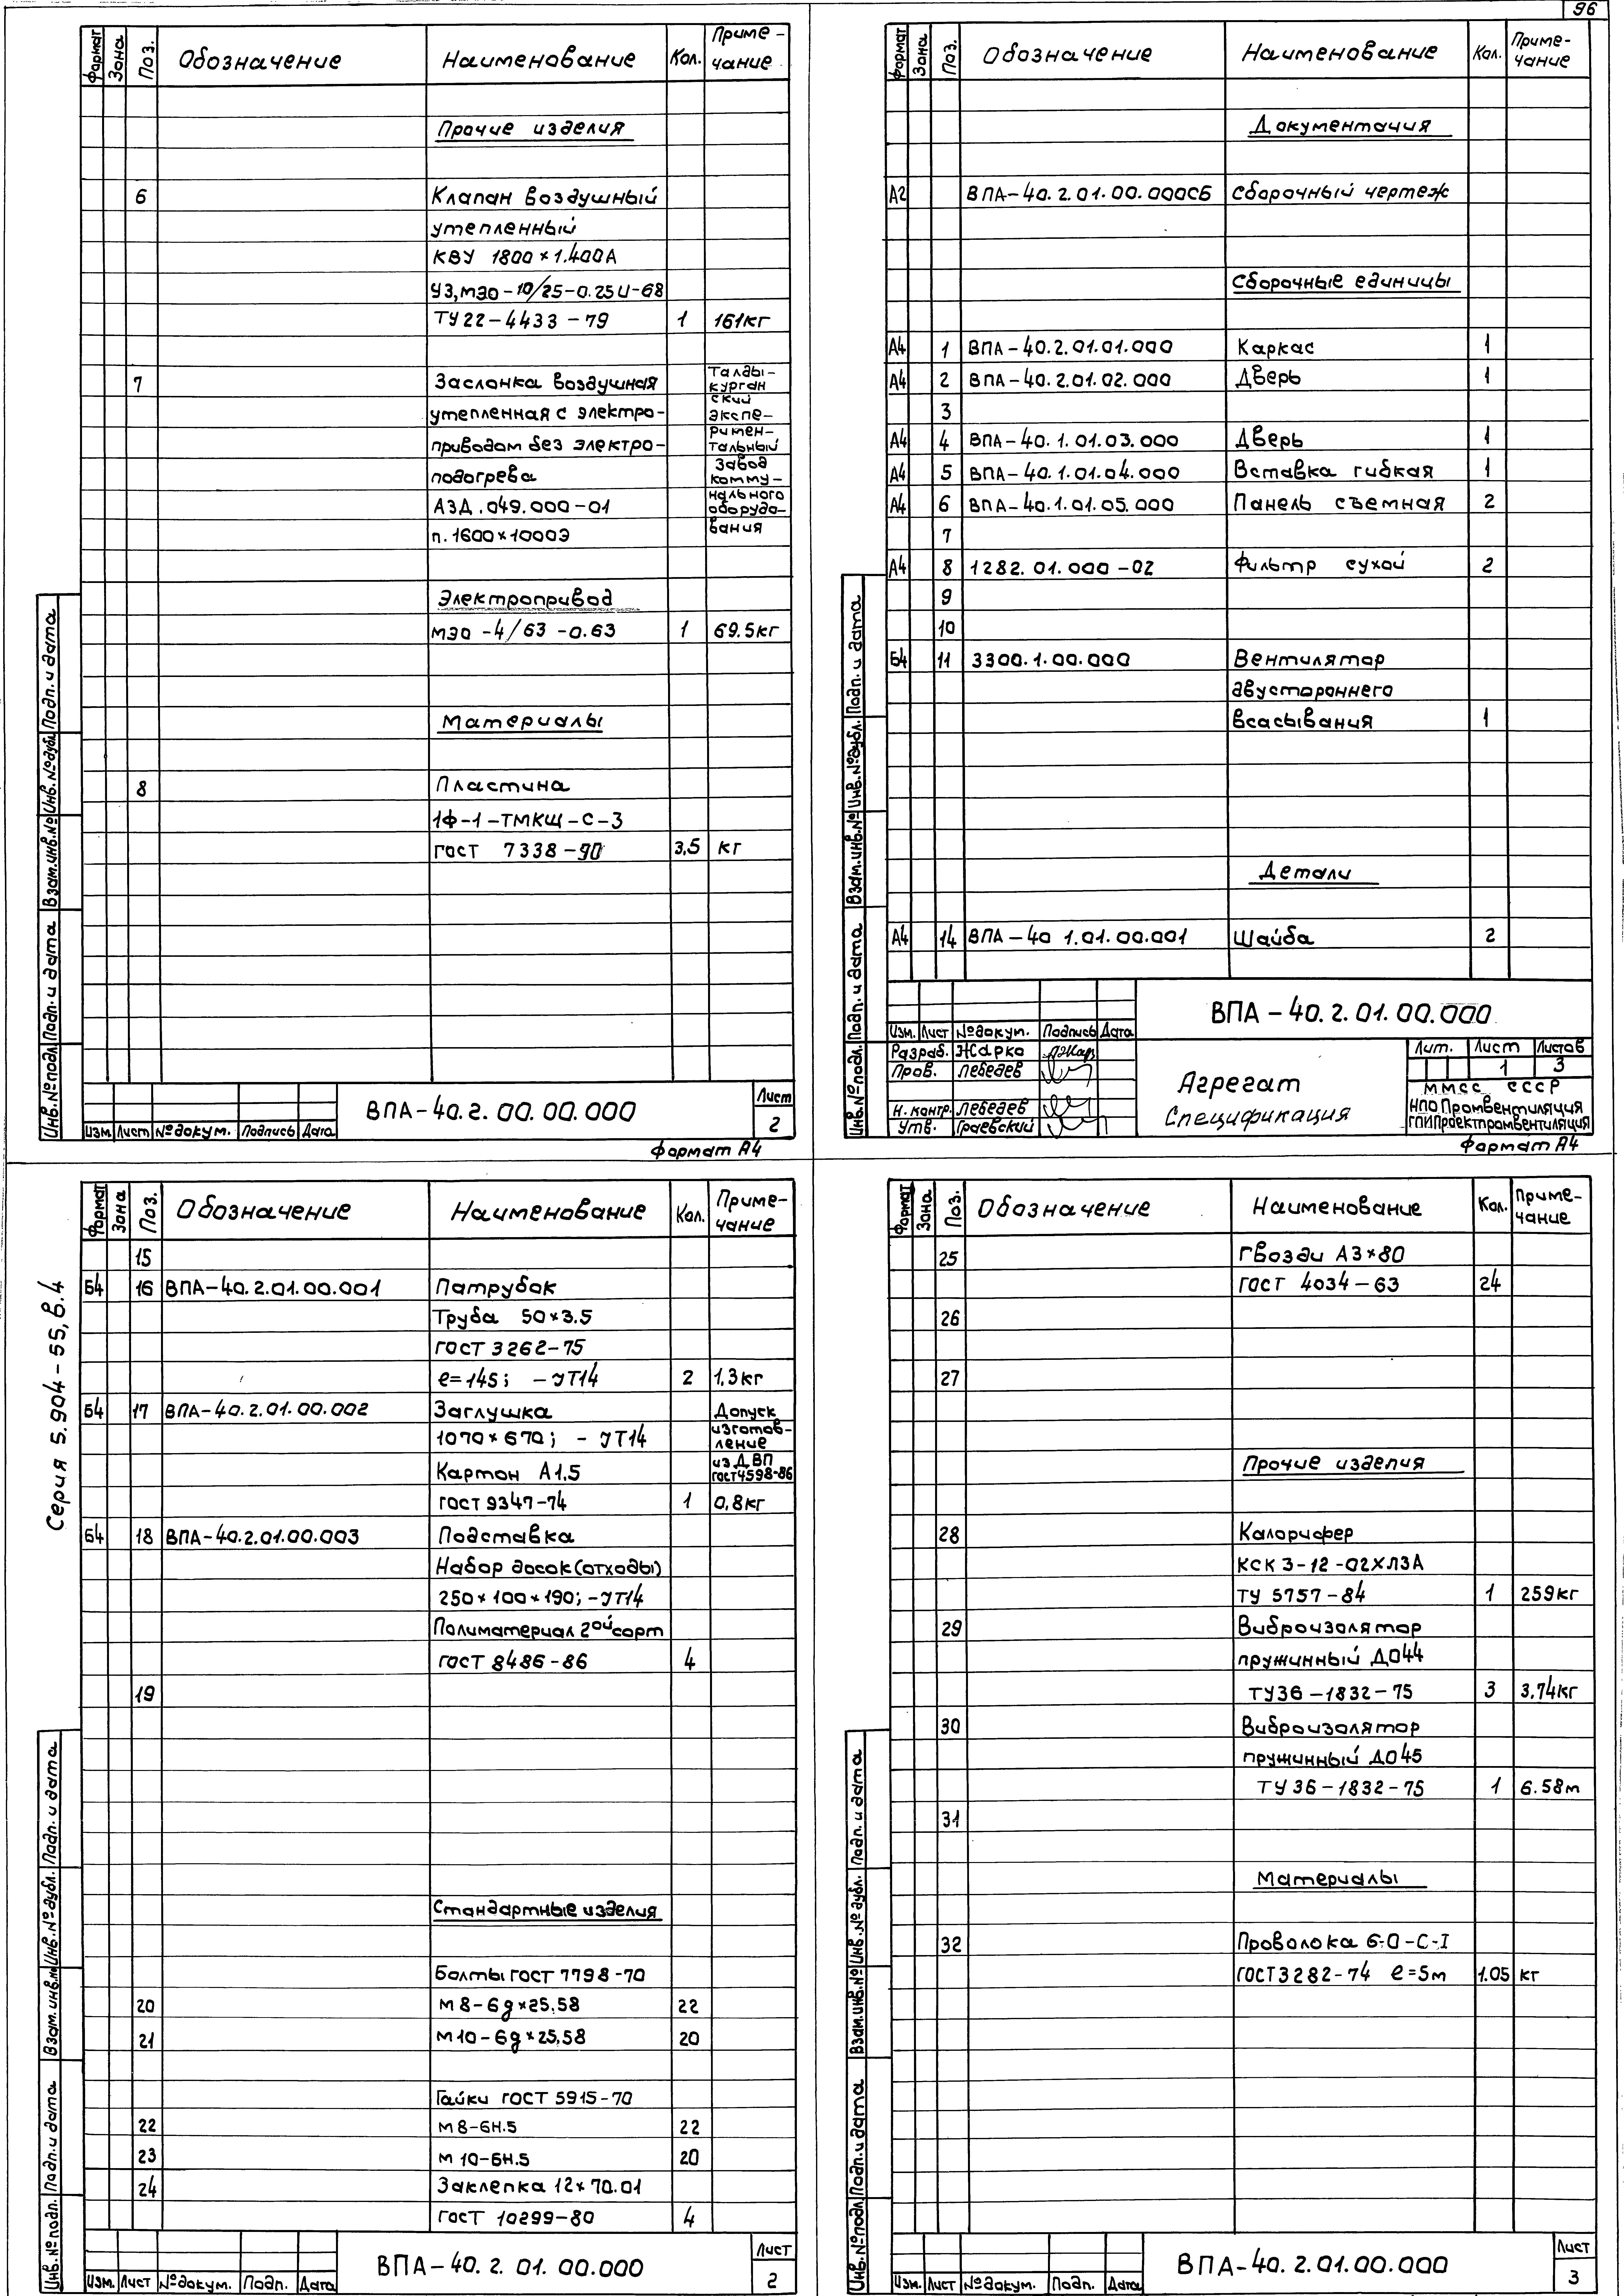 96
Формат Зона Поз. Обозначение Наименование Кол. Приме-чание
Прочие изделия
6 Клапан воздушный
утепленный
КВУ 1800×1.400А
У3, МЭО-10/25-0.25U-68
ТУ 22-4433-79 1 161кг
7 Заслонка воздушная Талды-курган
утепленная с электро- ский экспе-
приводом без электро- римен-тальный
подогрева завод комму-
АЗД.049.000-01 нального оборудо-
п.1600×1000Э вания
Электропривод
МЭО-4/63-0.63 1 69.5кг
Материалы
8 Пластина
1Ф-1-ТМКЩ-С-3
ГОСТ 7338-90 3,5 кг
Инв.№подл. Подп. и дата Взам.инв.№ Инв.№дубл. Подп. и дата
Изм. Лист №докум. Подпись Дата
ВПА-40.2.00.00.000
Лист
2
Формат А4
Формат Зона Поз. Обозначение Наименование Кол. Приме-чание
Документация
А2 ВПА-40.2.01.00.000СБ Сборочный чертеж
Сборочные единицы
А4 1 ВПА-40.2.01.01.000 Каркас 1
А4 2 ВПА-40.2.01.02.000 Дверь 1
3
А4 4 ВПА-40.1.01.03.000 Дверь 1
А4 5 ВПА-40.1.01.04.000 Вставка гибкая 1
А4 6 ВПА-40.1.01.05.000 Панель съемная 2
7
А4 8 1282.01.000-02 Фильтр сухой 2
9
10
Б4 11 3300.1.00.000 Вентилятор
двустороннего
всасывания 1
Детали
А4 14 ВПА-40 1.01.00.001 Шайба 2
Инв.№подл. Подп. и дата Взам.инв.№ Инв.№дубл. Подп. и дата
ВПА-40.2.01.00.000
Изм. Лист №докум. Подпись Дата
Разраб. Жарко
Пров. Лебедев
Н. контр. Лебедев
Утв. Граевский
Агрегат
Спецификация
Лит. Лист Листов
1 3
ММСС СССР
НПО Промвентиляция
ГПИ Проектпромвентиляция
Формат А4
Серия 5.904-55, в.4
Формат Зона Поз. Обозначение Наименование Кол. Приме-чание
15
Б4 16 ВПА-40.2.01.00.001 Патрубок
Труба 50×3.5
ГОСТ 3262-75
ℓ=145; -JT14 2 1,3кг
Б4 17 ВПА-40.2.01.00.002 Заглушка Допуск
1070×670; -JT14 изготов-ление
Картон А1.5 из ДВП ГОСТ4598-86
ГОСТ 9347-74 1 0,8кг
Б4 18 ВПА-40.2.01.00.003 Подставка
Набор досок(отходы)
250×100×190; -JT14
Полиматериал 2ой сорт
ГОСТ 8486-86 4
19
Стандартные изделия
Болты ГОСТ 7798-70
20 М8-6g×25.58 22
21 М10-6g×25.58 20
Гайки ГОСТ 5915-70
22 М8-6Н.5 22
23 М10-6Н.5 20
24 Заклепка 12×70.01
ГОСТ 10299-80 4
Инв.№подл. Подп. и дата Взам.инв.№ Инв.№дубл. Подп. и дата
Изм. Лист №докум. Подп. Дата
ВПА-40.2.01.00.000
Лист
2
Формат Зона Поз. Обозначение Наименование Кол. Приме-чание
25 Гвозди А3×80
ГОСТ 4034-63 24
26
27
Прочие изделия
28 Калорифер
КСК 3-12-02ХЛ3А
ТУ 5757-84 1 259кг
29 Виброизолятор
пружинный ДО44
ТУ36-1832-75 3 3,74кг
30 Виброизолятор
пружинный ДО45
ТУ 36-1832-75 1 6.58м
31
Материалы
32 Проволока 6-О-С-I
ГОСТ3282-74 ℓ=5м 1.05 кг
Инв.№подл. Подп. и дата Взам.инв.№ Инв.№дубл. Подп. и дата
Изм. Лист №докум. Подп. Дата
ВПА-40.2.01.00.000
Лист
3